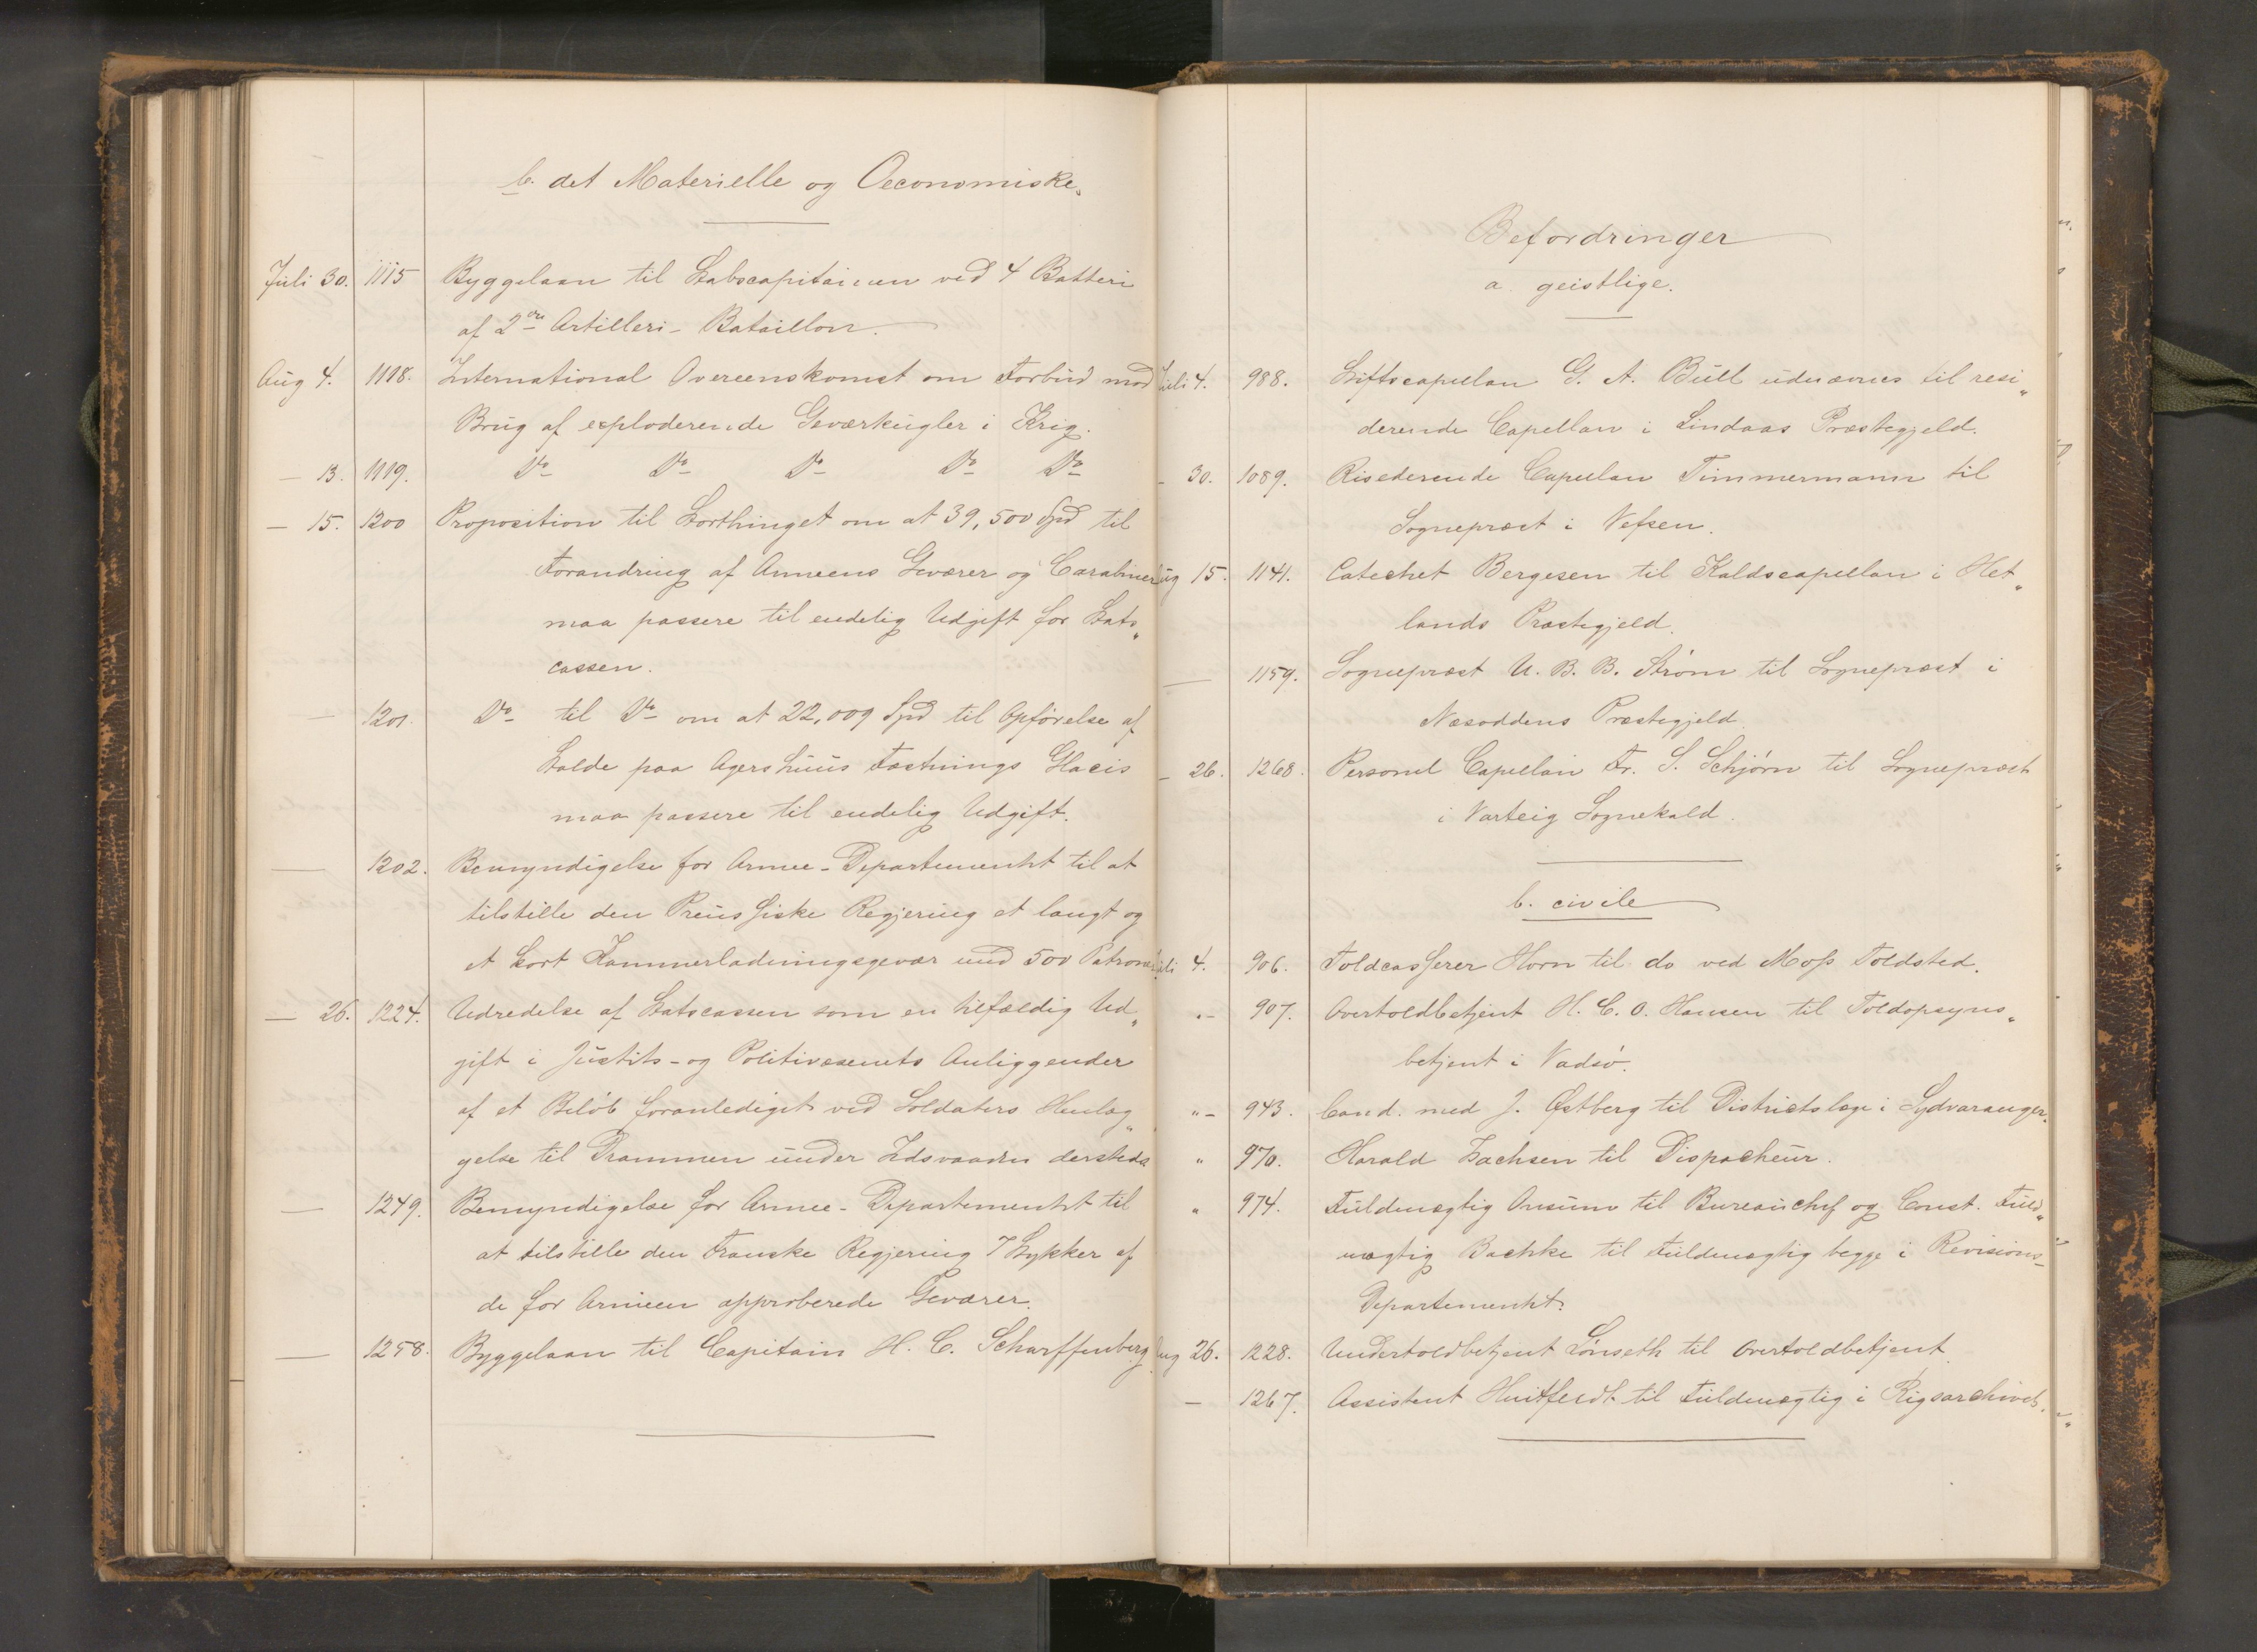 b. det Materielle og Oeconomiske.
Juli 30. 1115 Byggelaan til Stabscapitainen ved 4 Batteri
af 2den Artilleri-Bataillon.
Aug 4. 1118. International Overeenskomst om Forbud mod
Brug af exploderende Geværkugler i Krig.
— 13. 1119. Do Do Do Do Do
— 15. 1200 Proposition til Storthinget om at 39,500 Spd til
Forandring af Armeens Geværer og Carabiner
maa passere til endelig Udgift for Stats„
cassen.
— 1201. Do til Do om at 22,009 Spd til Opførelse af
Stalde paa Agershuus Fæstnings Glacis
maa passere til endelig Udgift.
— 1202. Bemyndigelse for Armee-Departementet til at
tilstille den Preussiske Regjering et langt og
et kort Kammerladningsgevær med 500 Patroner
— 26. 1224. Udredelse af Statscassen som en tilfældig Ud„
gift i Justits- og Politivæsenets Anliggender
af et Beløb foranlediget ved Soldaters Henlæg„
gelse til Drammen under Ildsvaaden dersteds
— 1249. Bemyndigelse for Armee-Departementet til
at tilstille den Franske Regjering 7 Stykker af
de for Armeen approberede Geværer.
— 1258. Byggelaan til Capitain H. C. Scharffenberg
Befordringer
a. geistlige.
Juli 4. 988. Stiftscapellan G. A. Bull udnævnes til resi„
derende Capellan i Lindaas Præstegjeld.
— 30. 1089. Risederende Capellan Timmermann til
Sognepræst i Vefsen.
Aug 15. 1141. Catechet Bergesen til Kaldscapellan i Het„
lands Præstegjeld.
— 1159. Sognepræst U. B. B. Strøm til Sognepræst i
Næsoddens Præstegjeld.
— 26. 1268. Personel Capellan Fr. S. Schjørn til Sognepræst
i Varteig Sognekald.
b. civile
Juli 4. 906. Toldcasserer Horn til do ved Moss Toldsted.
„- 907. Overtoldbetjent H. C. O. Hansen til Toldopsyns„
betjent i Vadsø.
„- 943. Cand. med J. Østberg til Districtslæge i Sydvaranger.
„ 970. Harald Zachsen til Dispacheur.
„ 974. Fuldmægtig Ansum til Bureauchef og Const. Fuld„
mægtig Bachke til Fuldmægtig begge i Revisions-
Departementet.
Aug 26. 1228. Undertoldbetjent Lønseth til Overtoldbetjent.
— 1267. Assistent Huitfeldt til Fuldmægtig i Rigsarchivet.